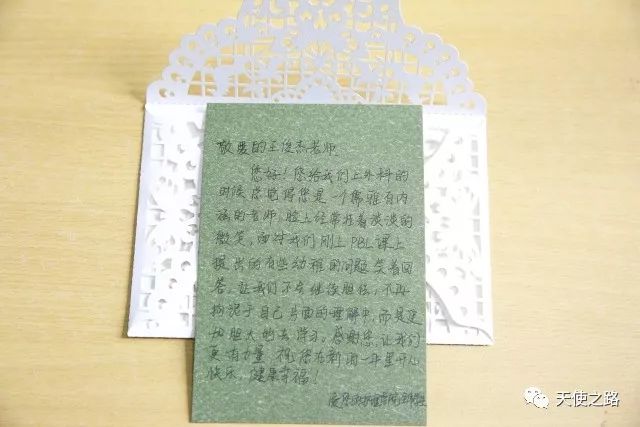 敬爱的王俊杰老师
您好！您给我们上外科的
时候总觉得您是一个儒雅有内
涵的老师，脸上经常挂着淡淡的
微笑，面对我们刚上PBL课上
提出的有些幼稚的问题笑着回
答，让我们不再继续胆怯，不再
拘泥于自己片面的理解中，而是更
加胆大的去学习。感谢您，让我们
更有力量。祝您在新的一年里开心
快乐，健康幸福！
天使之路